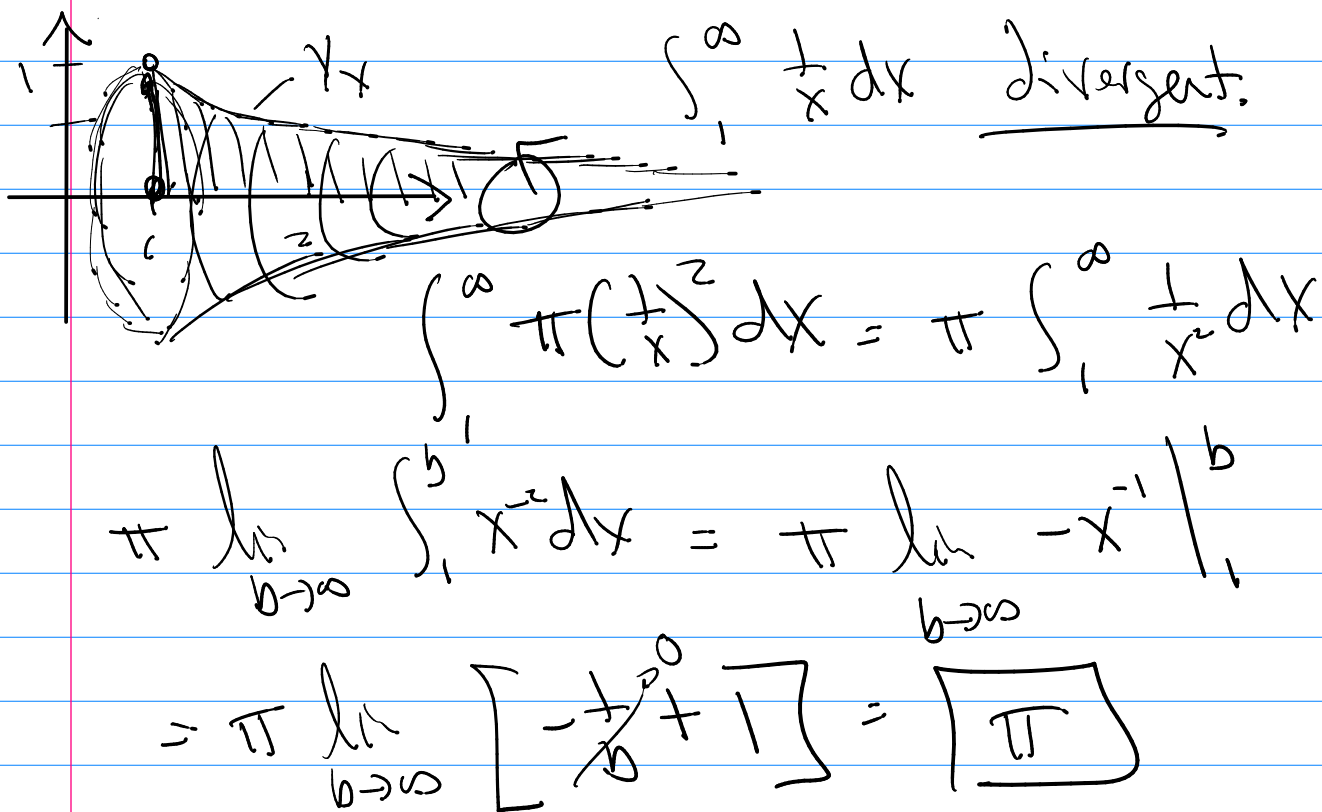 1
1/x
∫₁^∞ 1/x dx divergent.
1
2
∫₁^∞ π(1/x)² dx = π ∫₁^∞ 1/x² dx
π lim b→∞ ∫₁^b x⁻² dx = π lim b→∞ -x⁻¹ |₁^b
= π lim b→∞ [-1/b → 0 + 1] = π